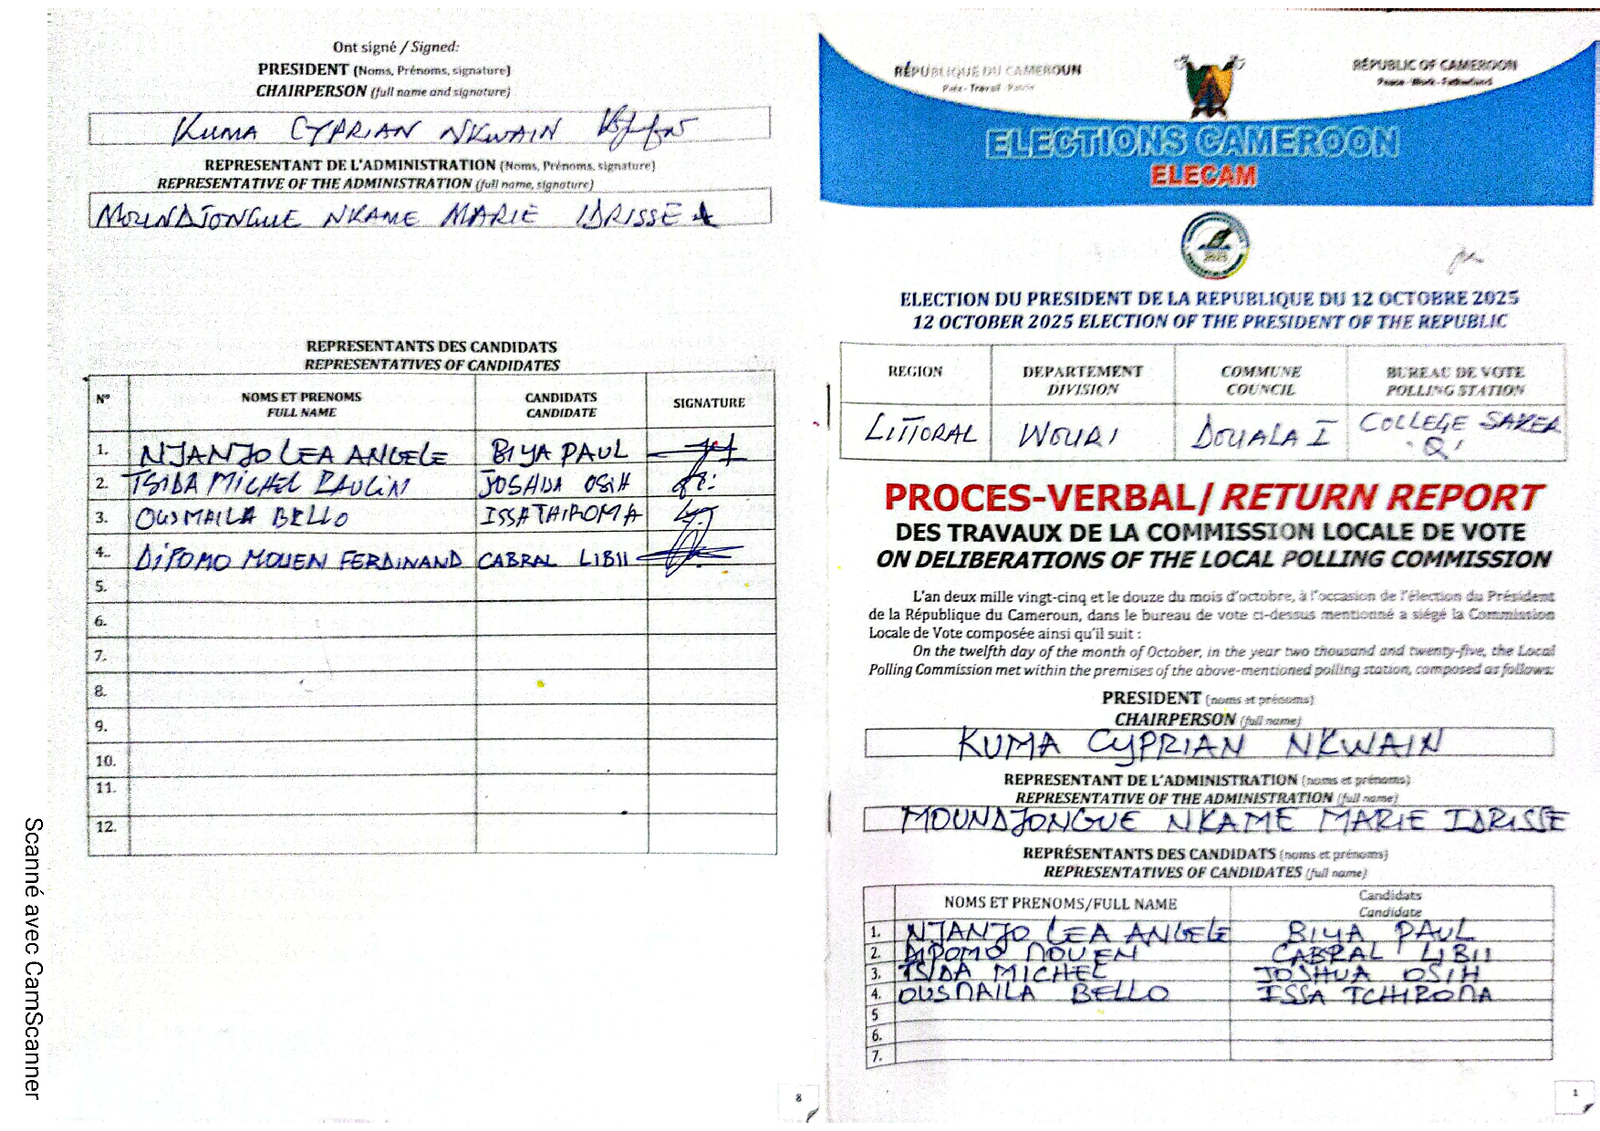 Ont signé / Signed:
PRESIDENT (Noms, Prénoms, signature)
CHAIRPERSON (full name and signature)
KUMA CYPRIAN NKWAIN
REPRESENTANT DE L'ADMINISTRATION (Noms, Prénoms, signature)
REPRESENTATIVE OF THE ADMINISTRATION (full name, signature)
MOUNDJONGUE NKAME MARIE IDRISSE
REPRESENTANTS DES CANDIDATS
REPRESENTATIVES OF CANDIDATES
N° NOMS ET PRENOMS CANDIDATS SIGNATURE
FULL NAME CANDIDATE
1. NJANJO LEA ANGELE BIYA PAUL
2. TSIDA MICHEL PAULIN JOSHUA OSIH
3. OUSMAILA BELLO ISSA TAIROMA
4. DIPOMO MOUEN FERDINAND CABRAL LIBII
5.
6.
7.
8.
9.
10.
11.
12.
8
Scanné avec CamScanner
RÉPUBLIQUE DU CAMEROUN
Paix - Travail - Patrie
RÉPUBLIC OF CAMEROON
Peace - Work - Fatherland
ELECTIONS CAMEROON
ELECAM
2025
ELECTION DU PRESIDENT DE LA REPUBLIQUE DU 12 OCTOBRE 2025
12 OCTOBER 2025 ELECTION OF THE PRESIDENT OF THE REPUBLIC
REGION DEPARTEMENT COMMUNE BUREAU DE VOTE
DIVISION COUNCIL POLLING STATION
LITTORAL WOURI DOUALA I COLLEGE SAKER
'Q'
PROCES-VERBAL/ RETURN REPORT
DES TRAVAUX DE LA COMMISSION LOCALE DE VOTE
ON DELIBERATIONS OF THE LOCAL POLLING COMMISSION
L'an deux mille vingt-cinq et le douze du mois d'octobre, à l'occasion de l'élection du Président
de la République du Cameroun, dans le bureau de vote ci-dessus mentionné a siégé la Commission
Locale de Vote composée ainsi qu'il suit :
On the twelfth day of the month of October, in the year two thousand and twenty-five, the Local
Polling Commission met within the premises of the above-mentioned polling station, composed as follows:
PRESIDENT (noms et prénoms)
CHAIRPERSON (full name)
KUMA CYPRIAN NKWAIN
REPRESENTANT DE L'ADMINISTRATION (noms et prénoms)
REPRESENTATIVE OF THE ADMINISTRATION (full name)
MOUNDJONGUE NKAME MARIE IDRISSE
REPRÉSENTANTS DES CANDIDATS (noms et prénoms)
REPRESENTATIVES OF CANDIDATES (full name)
NOMS ET PRENOMS/FULL NAME Candidats
Candidate
1. NJANJO LEA ANGELE BIYA PAUL
2. DIPOMO MOUEN CABRAL LIBII
3. TSIDA MICHEL JOSHUA OSIH
4. OUSMAILA BELLO ISSA TCHIROMA
5
6.
7.
1